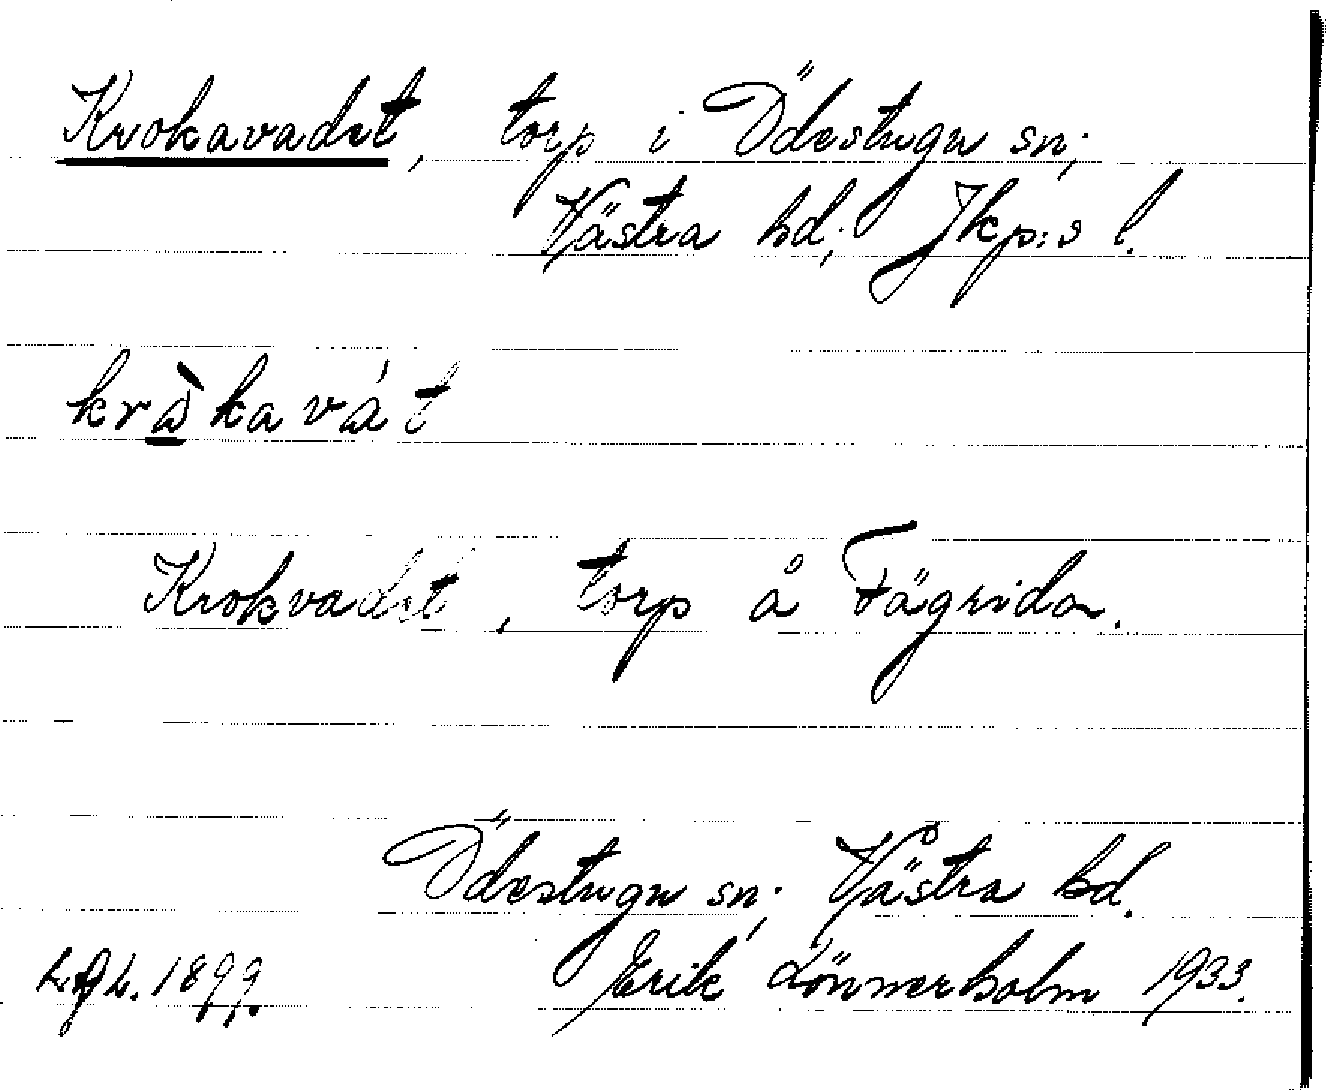 Krokavadet, torp i Ödestugu sn;
Västra hd; Jkp:s l.
kràkavát
Krokvadet, torp å Fägrida.
Ödestugu sn; Västra hd.
1899. Erik Lönnerholm 1933.